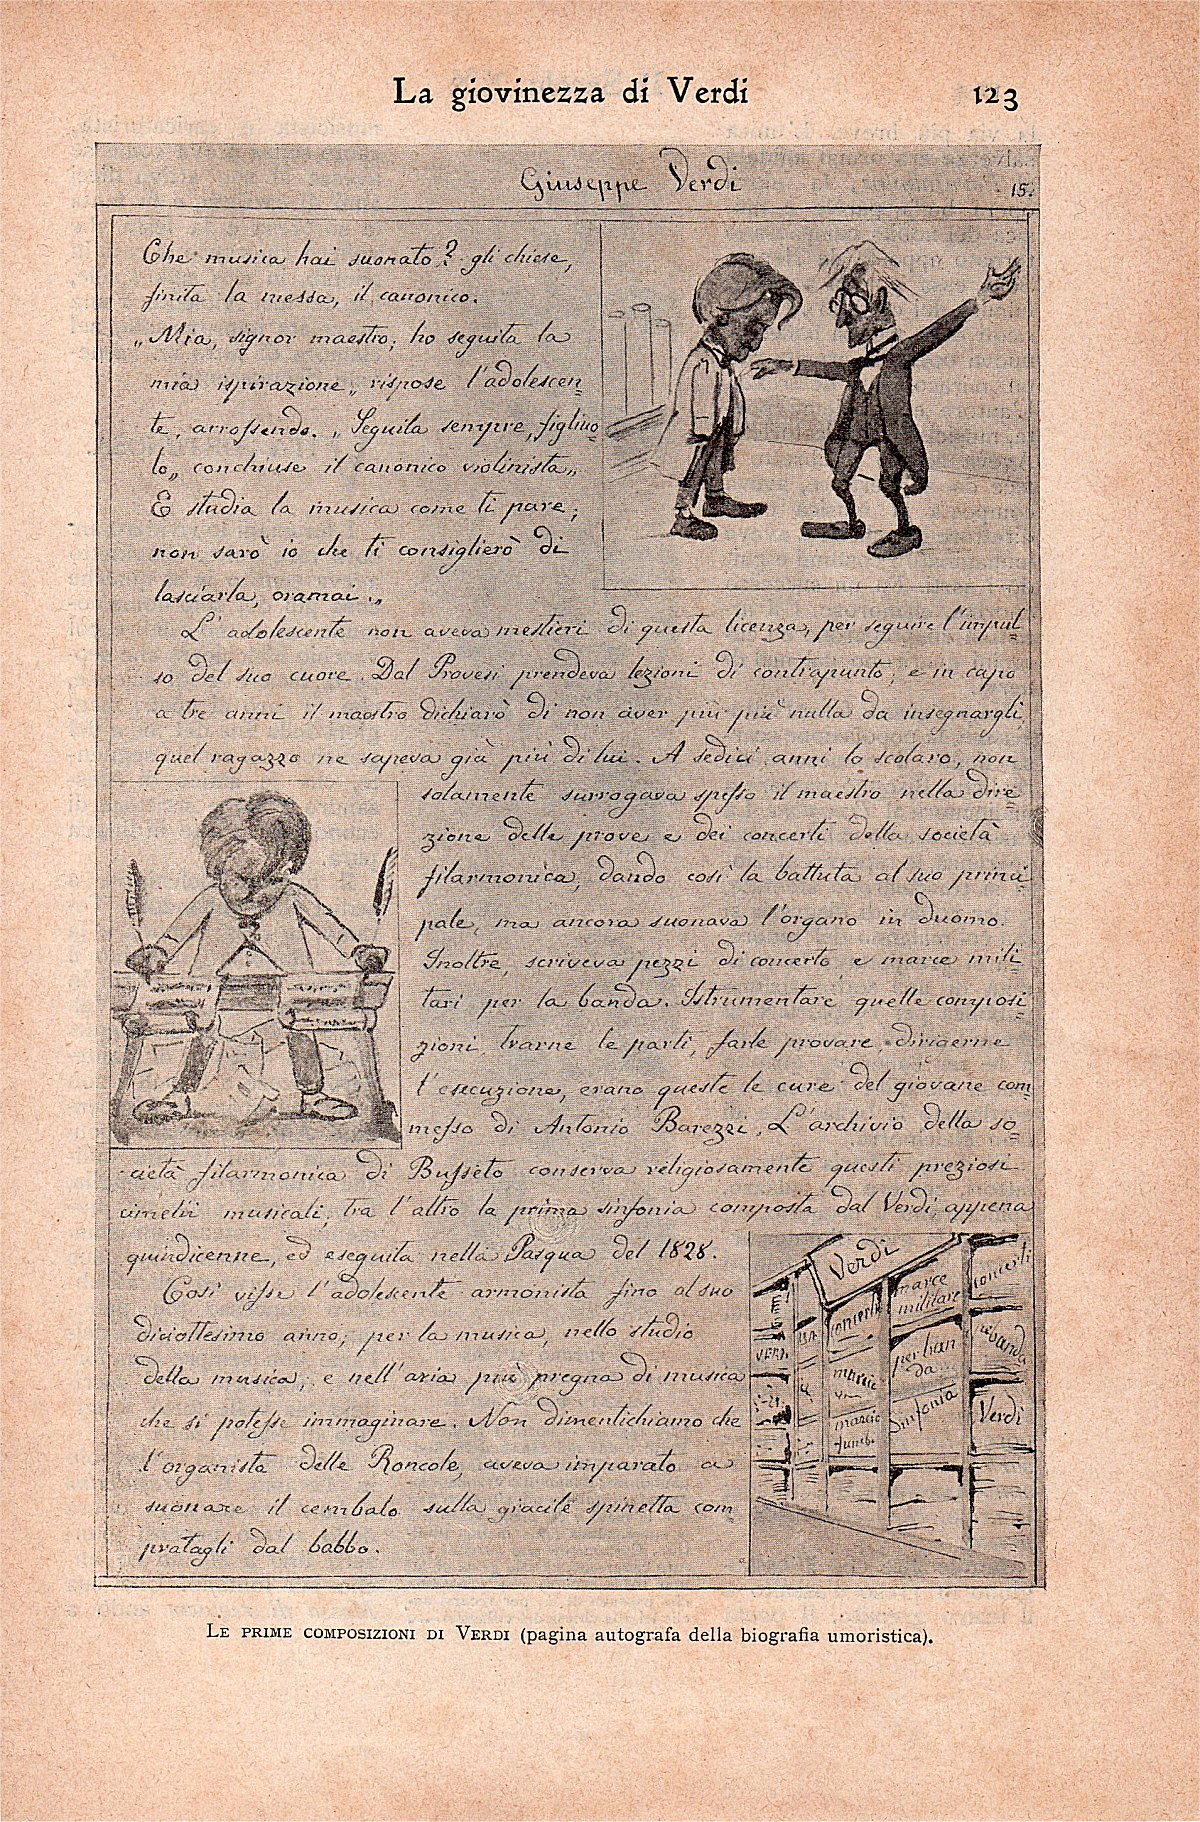 La giovinezza di Verdi 123
Giuseppe Verdi 15.
Che musica hai suonato? gli chiese,
finita la messa, il canonico.
„Mia, signor maestro; ho seguita la
mia ispirazione„ rispose l'adolescen=
te, arrossendo. „Seguita sempre, figliuo=
lo„ conchiuse il canonico violinista„
E studia la musica come ti pare;
non sarò io che ti consiglierò di
lasciarla, oramai.„
L'adolescente non aveva mestieri di questa licenza, per seguire l'impul=
so del suo cuore. Dal Provesi prendeva lezioni di contrapunto; e in capo
a tre anni il maestro dichiarò di non aver più più nulla da insegnargli
quel ragazzo ne sapeva già più di lui. A sedici anni lo scolaro, non
solamente surrogava spesso il maestro nella dire=
zione delle prove e dei concerti della società
filarmonica, dando così la battuta al suo princi=
pale, ma ancora suonava l'organo in duomo.
Inoltre, scriveva pezzi di concerto e marce mili=
tari per la banda. Istrumentare quelle composi=
zioni, trarne le parti, farle provare, dirigerne
l'esecuzione, erano queste le cure del giovane com=
messo di Antonio Barezzi. L'archivio della so=
cietà filarmonica di Busseto conserva religiosamente questi preziosi
cimelii musicali, tra l'altro la prima sinfonia composta dal Verdi, appena
quindicenne, ed eseguita nella Pasqua del 1828.
Così visse l'adolescente armonista fino al suo
diciottesimo anno, per la musica, nello studio
della musica, e nell'aria più pregna di musica
che si potesse immaginare. Non dimentichiamo che
l'organista delle Roncole, aveva imparato a
suonare il cembalo sulla gracile spinetta com
pratagli dal babbo.
Verdi
marce
militare
concerti
concerti
per ban
da
banda
marcie
marcie
funebri
Sinfonia
Verdi
VERDI
LE PRIME COMPOSIZIONI DI VERDI (pagina autografa della biografia umoristica).